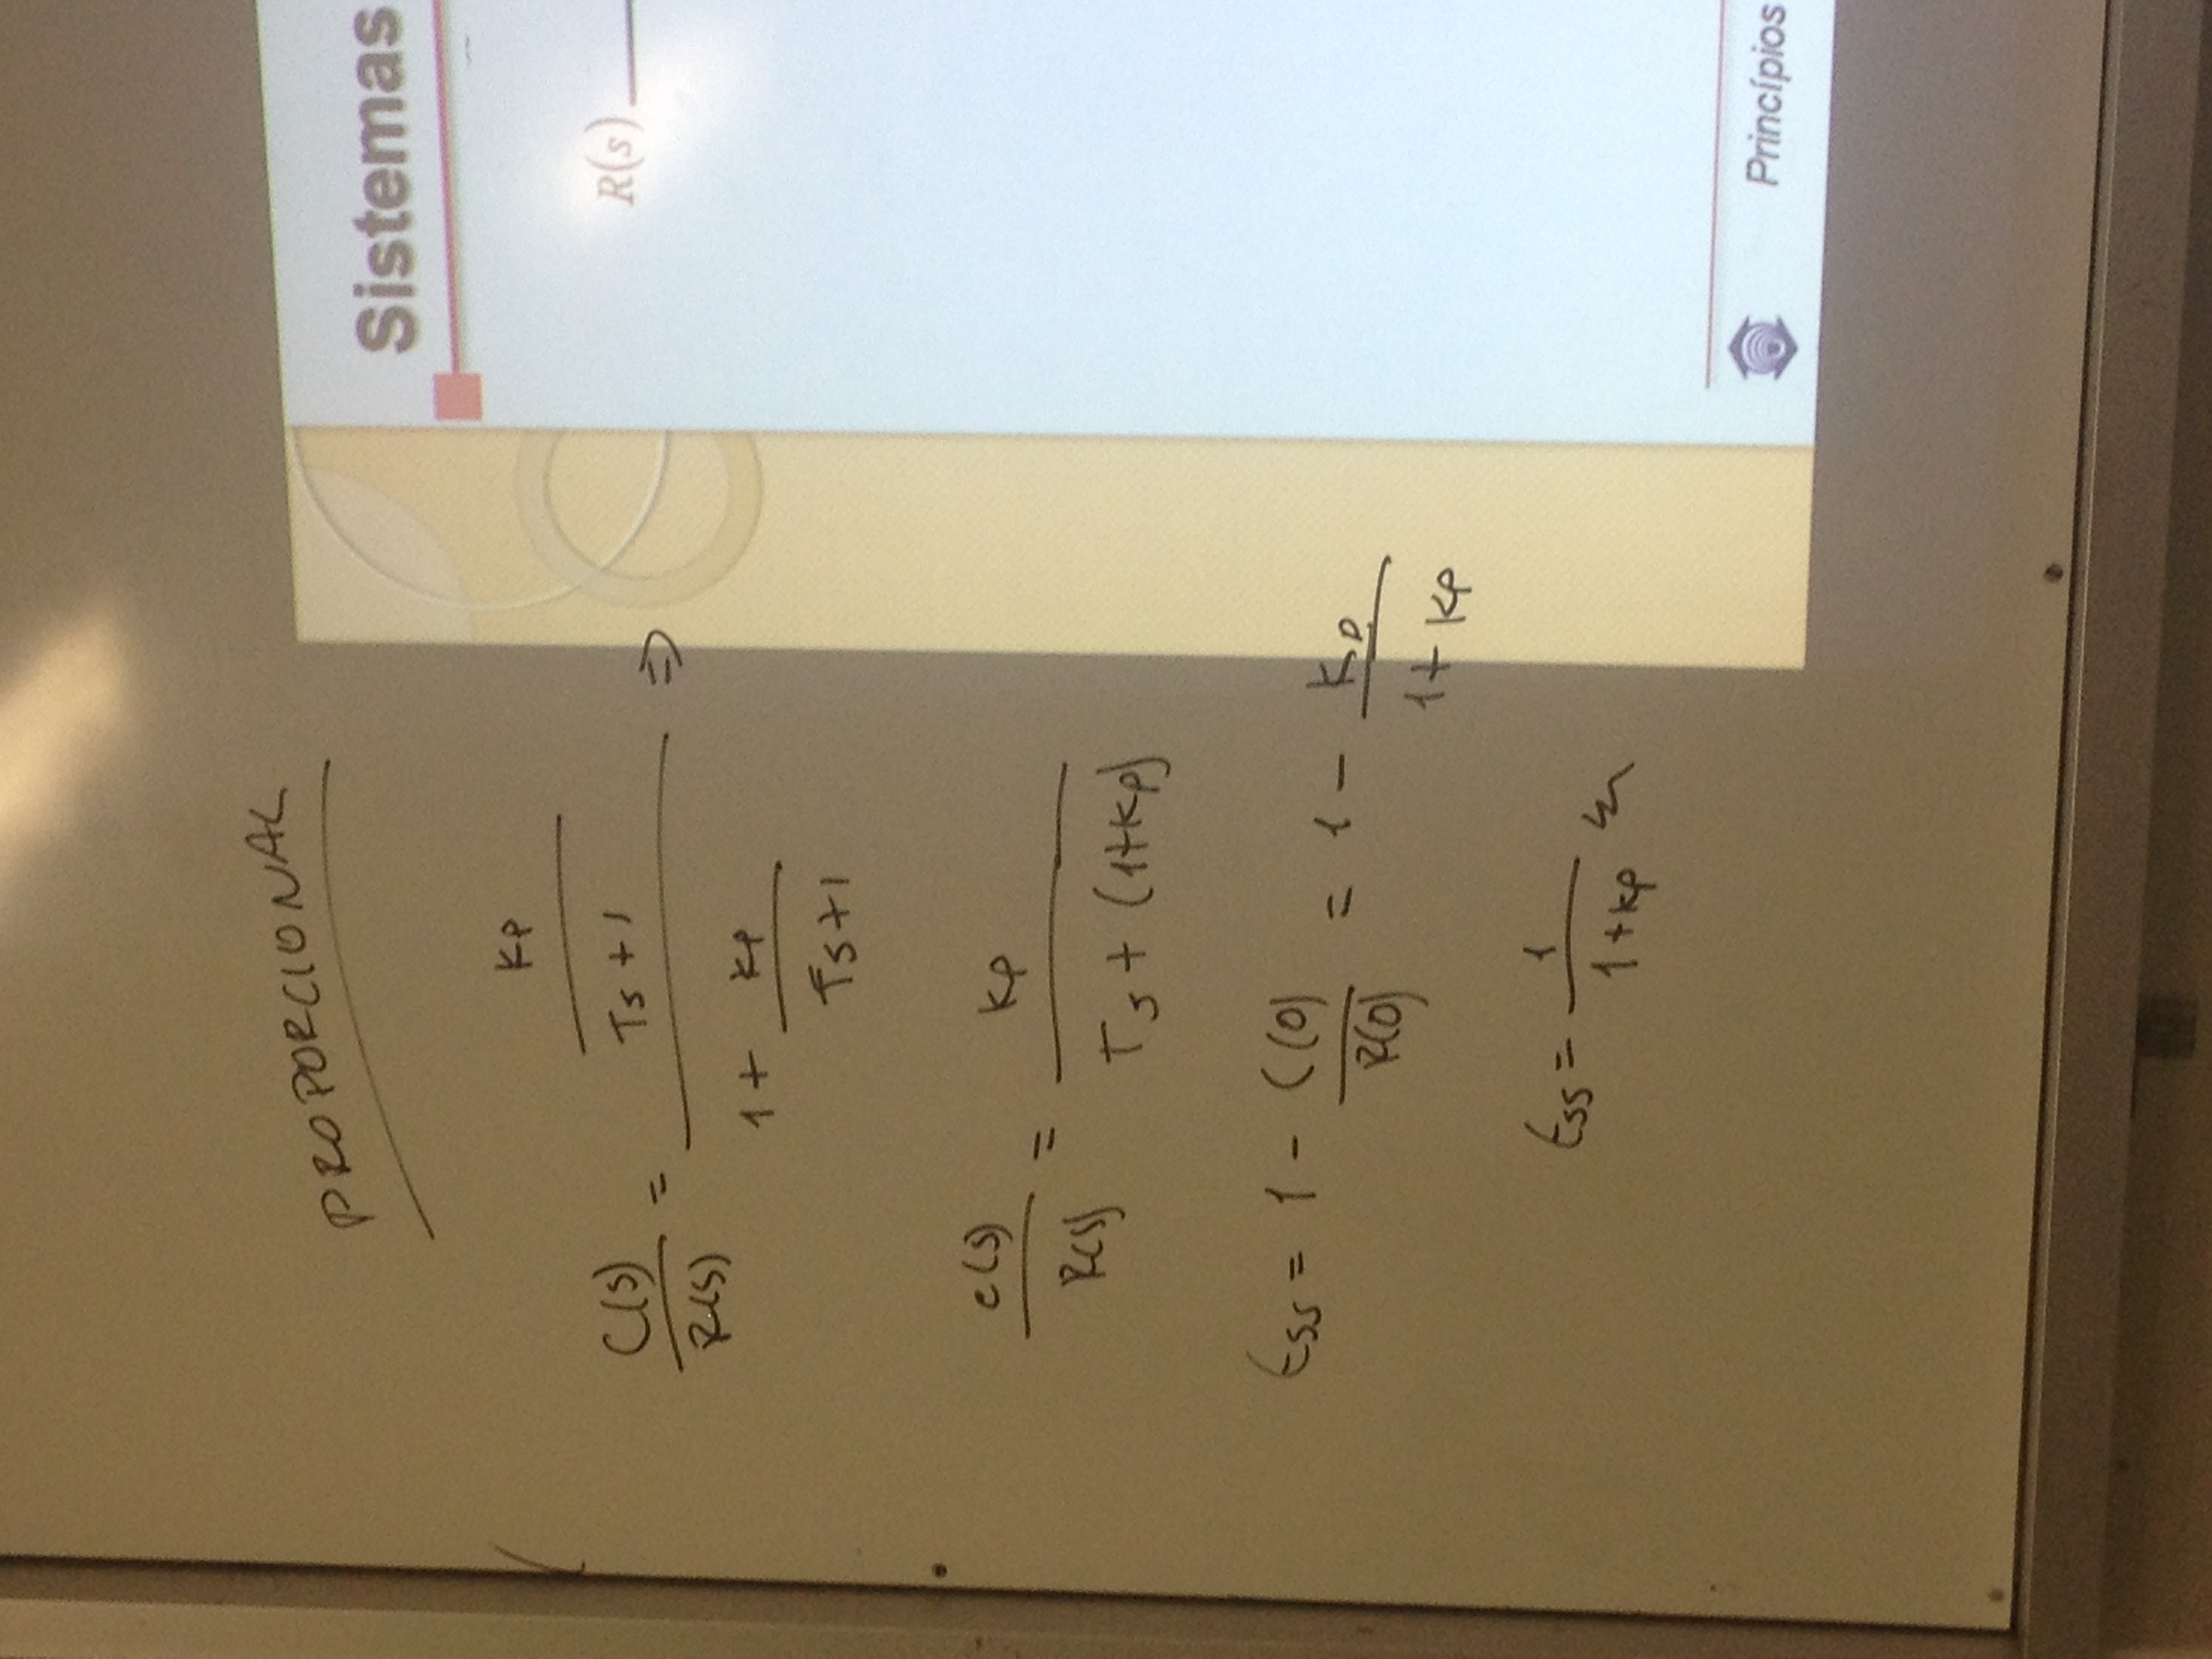 PROPORCIONAL
C(s)/R(s) = (Kp/(Ts+1))/(1+Kp/(Ts+1)) ⇒
C(s)/R(s) = Kp/(Ts+(1+Kp))
Ess = 1 - C(0)/R(0) = 1 - Kp/(1+Kp)
Ess = 1/(1+Kp)
Sistemas
R(s)
Princípios